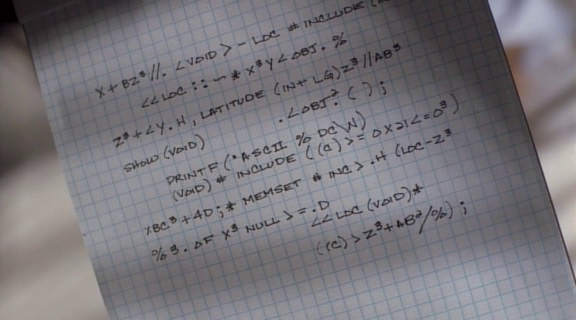 X + BZ³ //. <VOID> - LOC # INCLUDE (IN
<<LOC :: ~ * X³Y < OBJ. %
Z³ + <Y. H, LATITUDE (INT LG) Z³ // AB³
SHOW (VOID) . <OBJ.² ( ) ;
PRINTF ("ASCII % DC\W)
(VOID) # INCLUDE ((C) > = 0X21 < = 0³)
XBC³ + 4D; * MEMSET # INC > .H (LOC - Z³
% 3. ΔF X³ NULL > = .D
<<LOC (VOID) *
((C) > Z³ + AB² / %) ;